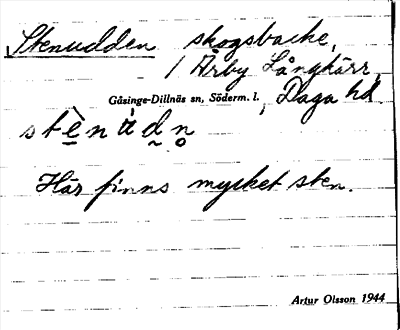 Stenudden skogsbacke,
/ Årby Långkärr
Gåsinge-Dillnäs sn, Söderm. l. , Daga hd.
stènùdn̥
Här finns mycket sten.
Artur Olsson 1944